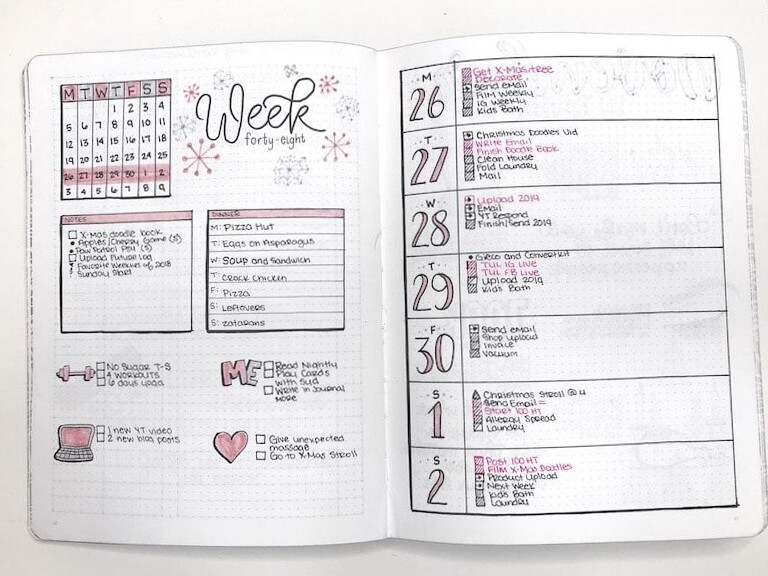 M T W T F S S
1 2 3 4
5 6 7 8 9 10 11
12 13 14 15 16 17 18
19 20 21 22 23 24 25
26 27 28 29 30 1 2
3 4 5 6 7 8 9
Week
forty-eight
NOTES
X-mas doodle book
Apples/Cherry Game (S)
Paw Patrol PSY (S)
Upload Future Log
Favorite Weeklies of 2018
Sunday Start
DINNER
M: Pizza Hut
T: Eggs on Asparagus
W: Soup and Sandwich
T: Crack Chicken
F: Pizza
S: Leftovers
S: Zatarans
No Sugar T-S
4 workouts
6 days yoga
ME
Read Nightly
Play Cards
with Syd
Write in Journal
More
1 new YT video
2 new blog posts
Give unexpected
massage
Go to X-Mas Stroll
M
26
Get X-Mas tree
Decorate
Send email
Film Weekly
IG Weekly
Kids Bath
T
27
Christmas Doodles Vid
Write Email
Finish Doodle Book
Clean House
Fold Laundry
Mail
W
28
Upload 2019
Email
YT Respond
Finish/Send 2019
T
29
Greco and ConvertKit
TUL IG Live
TUL FB Live
Upload 2019
Kids Bath
F
30
Send email
Shop upload
Invoice
Vacuum
S
1
Christmas Stroll @ 4
Send Email =
Start 100 HT
Allergy Spread
Laundry
S
2
Post 100 HT
Film X-Mas Doodles
Product Upload
Next Week
Kids Bath
Laundry